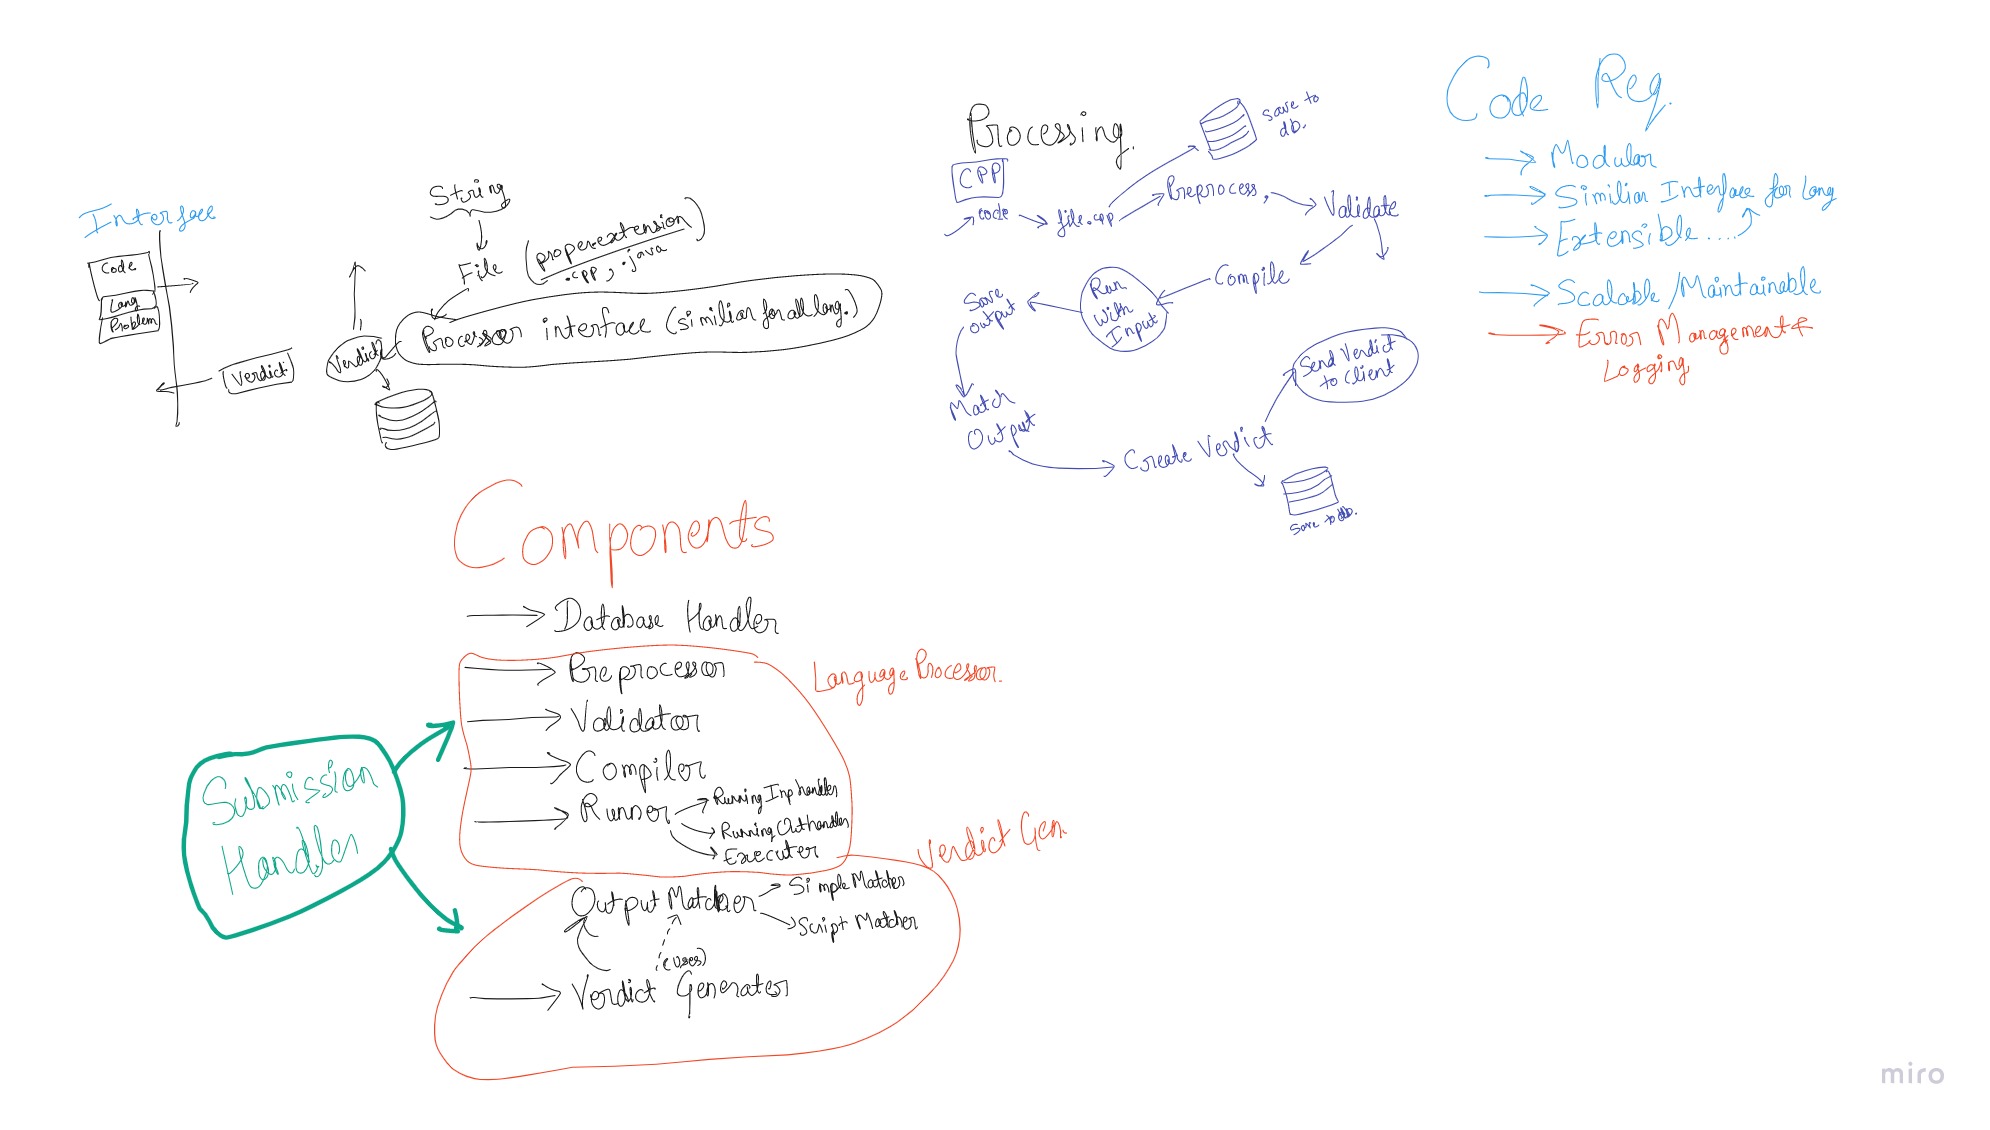 Interface
Code
Lang
Problem
Verdict
String
File
(proper.extension)
.cpp, .java
Processor interface (similiar for all lang.)
Verdict
Processing.
CPP
code
file.cpp
save to
db.
Preprocess,
Validate
Compile
Run
With
Input
Save
output
Match
Output
Create Verdict
Send Verdict
to client
Save to db.
Code Req.
Modular
Similiar Interface for lang
Extensible....
Scalable/Maintainable
Error Management &
Logging
Components
Database Handler
Preprocessor
Language Processor.
Validator
Compiler
Runner
Running Inp handler
Running Out handler
Executer
Submission
Handler
Verdict Gen.
Output Matcher
Simple Matcher
Script Matcher
(uses)
Verdict Generater
miro